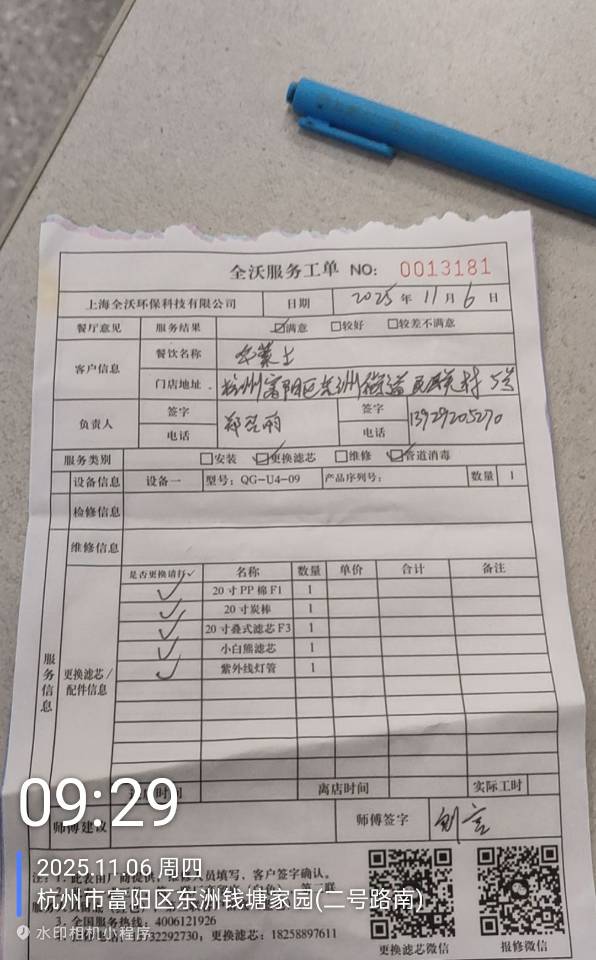 全沃服务工单 NO: 0013181
上海全沃环保科技有限公司 日期 2025年11月6日
餐厅意见 服务结果 ☑满意 □较好 □较差不满意
客户信息 餐饮名称 华莱士
门店地址 杭州富阳区东洲街道民联村 5号
负责人 签字 郑 雨 签字
电话 电话 13929205270
服务类别 □安装 ☑更换滤芯 □维修 ☑管道消毒
设备信息 设备一 型号:QG-U4-09 产品序列号: 数量 1
检修信息
维修信息
服务信息
更换滤芯/配件信息
是否更换请打✓ 名称 数量 单价 合计 备注
✓ 20寸PP棉F1 1
✓ 20寸炭棒 1
✓ 20寸叠式滤芯F3 1
✓ 小白熊滤芯 1
✓ 紫外线灯管 1
时间 离店时间 实际工时
师傅建议 师傅签字
09:29
2025.11.06 周四
杭州市富阳区东洲钱塘家园(二号路南)
水印相机小程序
客户签字确认。
3. 全国服务热线:4006121926
更换滤芯:18258897611
更换滤芯微信 报修微信